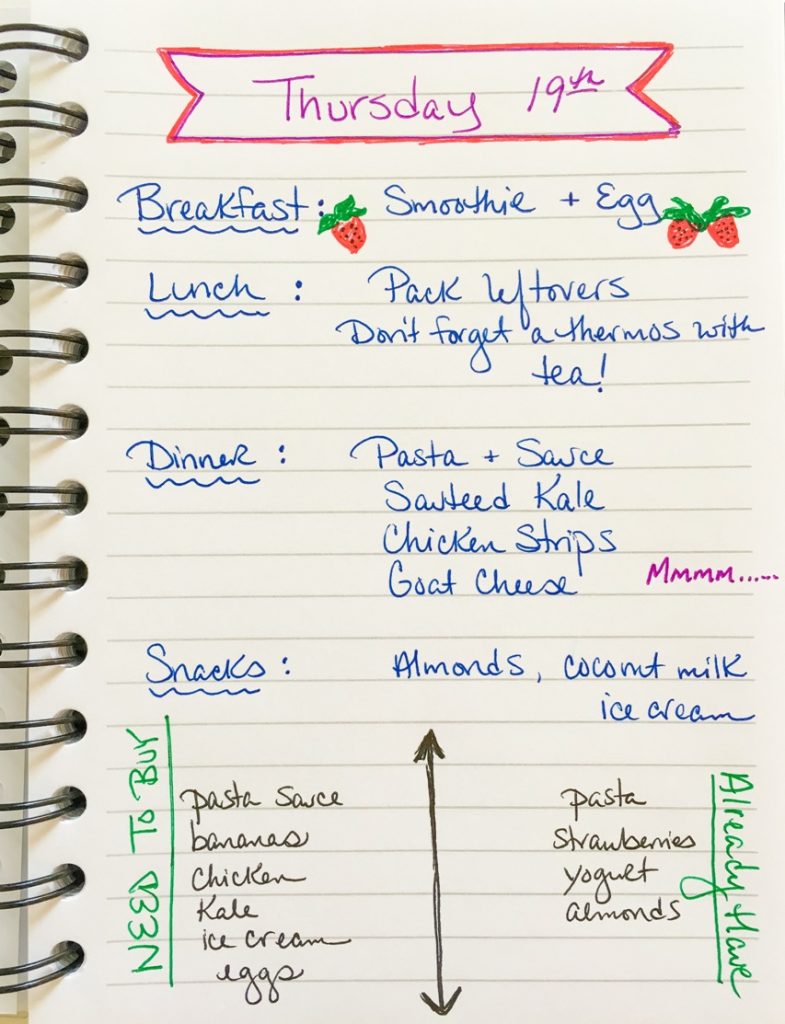 Thursday 19th
Breakfast: Smoothie + Egg
Lunch: Pack leftovers
Don't forget a thermos with
tea!
Dinner: Pasta + Sauce
Sauteed Kale
Chicken Strips
Goat Cheese Mmmm......
Snacks: Almonds, coconut milk
ice cream
NEED TO BUY
pasta sauce
bananas
chicken
Kale
ice cream
eggs
Already Have
pasta
strawberries
yogurt
almonds